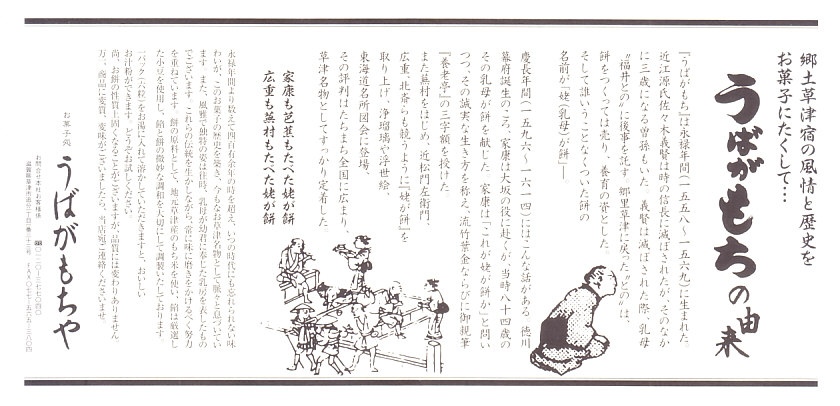 郷土草津宿の風情と歴史を
お菓子にたくして…
うばがもちの由来
『うばがもち』は永禄年間(一五五八〜一五六九)に生まれた。
近江源氏佐々木義賢は時の信長に滅ぼされたが、そのなか
に三歳になる曽孫もいた。義賢は滅ぼされた際、乳母
〝福井との〟に後事を託す。郷里草津に戻った〝との〟は、
餅をつくっては売り、養育の資とした。
そして誰いうことなくついた餅の
名前が『姥(乳母)が餅』―
慶長年間(一五九六〜一六一四)にはこんな話がある。徳川
幕府誕生のころ、家康は大坂の役に赴くが、当時八十四歳の
その乳母が餅を献じた。家康は「これが姥が餅か」と問い
つつ、その誠実な生き方を称え、流竹葉金ならびに御親筆
『養老亭』の三字額を授けた。
また蕪村をはじめ、近松門左衛門、
広重、北斎らも競うように『姥が餅』を
取り上げ、浄瑠璃や浮世絵、
東海道名所図会に登場、
その評判はたちまち全国に広まり、
草津名物としてすっかり定着した。
家康も芭蕉もたべた姥が餅
広重も蕪村もたべた姥が餅
永禄年間より数えて四百有余年の時を超え、いつの時代にも忘れられない味
わいが、このお菓子の歴史を築き、今もなお草津名物として脈々と息づいてい
ます。また、風雅で独特の姿は往時、乳母が幼君に奉じた乳房を表したもの
でございます。これらの伝統を生かしながら、常に味に磨きをかけるべく努力
を重ねています。餅の原料として、地元草津産のもち米を使い、餡は厳選し
た小豆を使用し、餡と餅の微妙な調和を大切にして調製いたしております。
一パック(六粒)をお湯に入れて溶かしていただきますと、おいしい
お汁粉ができます。どうぞお試しください。
尚、お餅の性質上固くなることがございますが、品質には変わりありません。
万一、商品に変質、変味がございましたら、当店宛ご連絡くださいませ。
お菓子処
うばがもちや